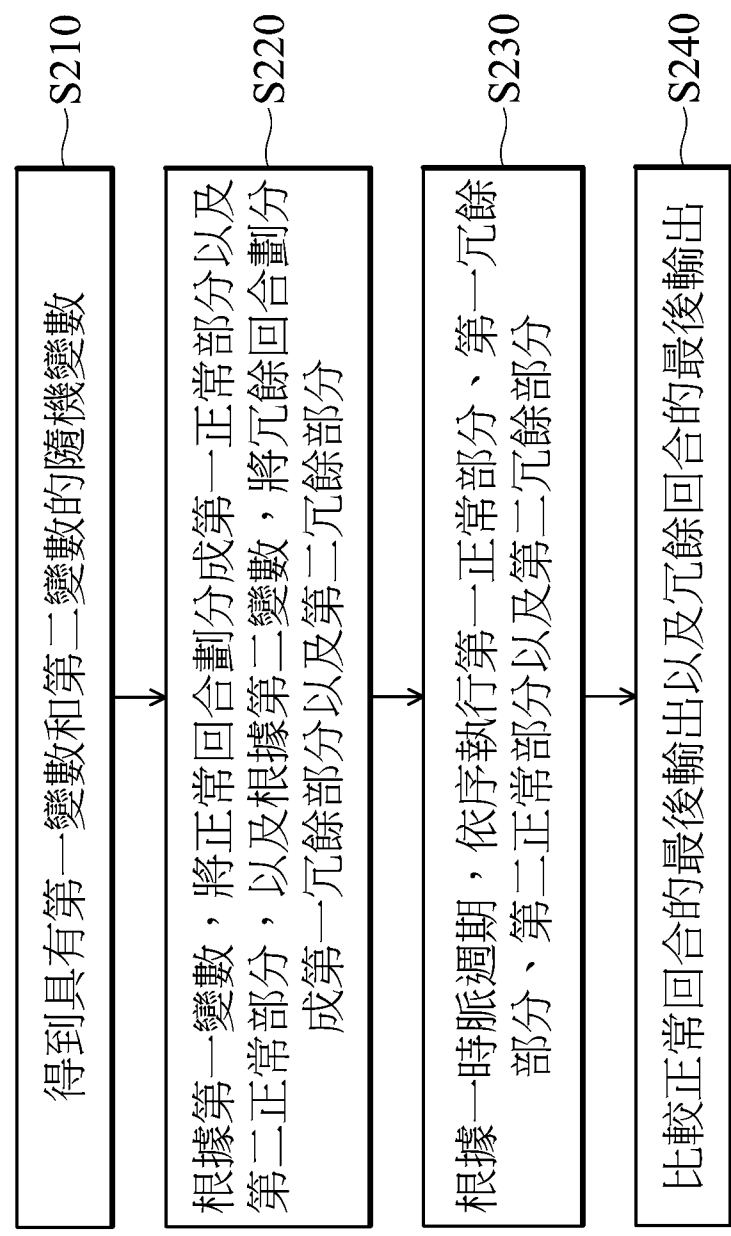 得到具有第一變數和第二變數的隨機變數
S210
根據第一變數，將正常回合劃分成第一正常部分以及
第二正常部分，以及根據第二變數，將冗餘回合劃分
成第一冗餘部分以及第二冗餘部分
S220
根據一時脈週期，依序執行第一正常部分、第一冗餘
部分、第二正常部分以及第二冗餘部分
S230
比較正常回合的最後輸出以及冗餘回合的最後輸出
S240